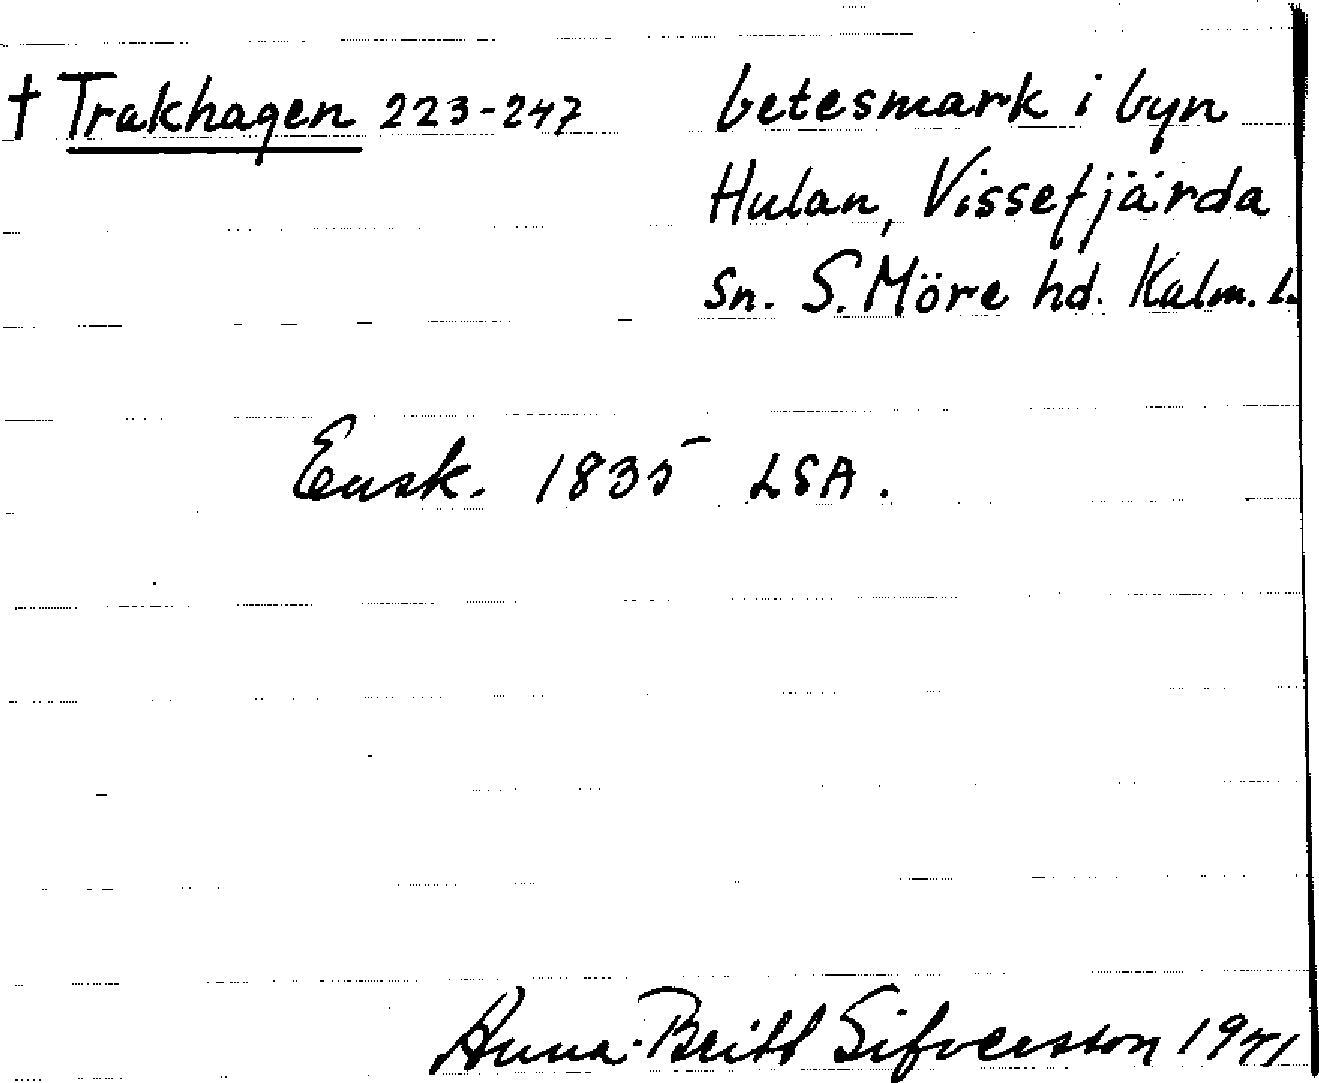 † Trakhagen 223-247 betesmark i byn
Hulan, Vissefjärda
sn. S. Möre hd. Kalm. l.
Ensk. 1835 LSA.
Anna-Britt Sifversson 1971